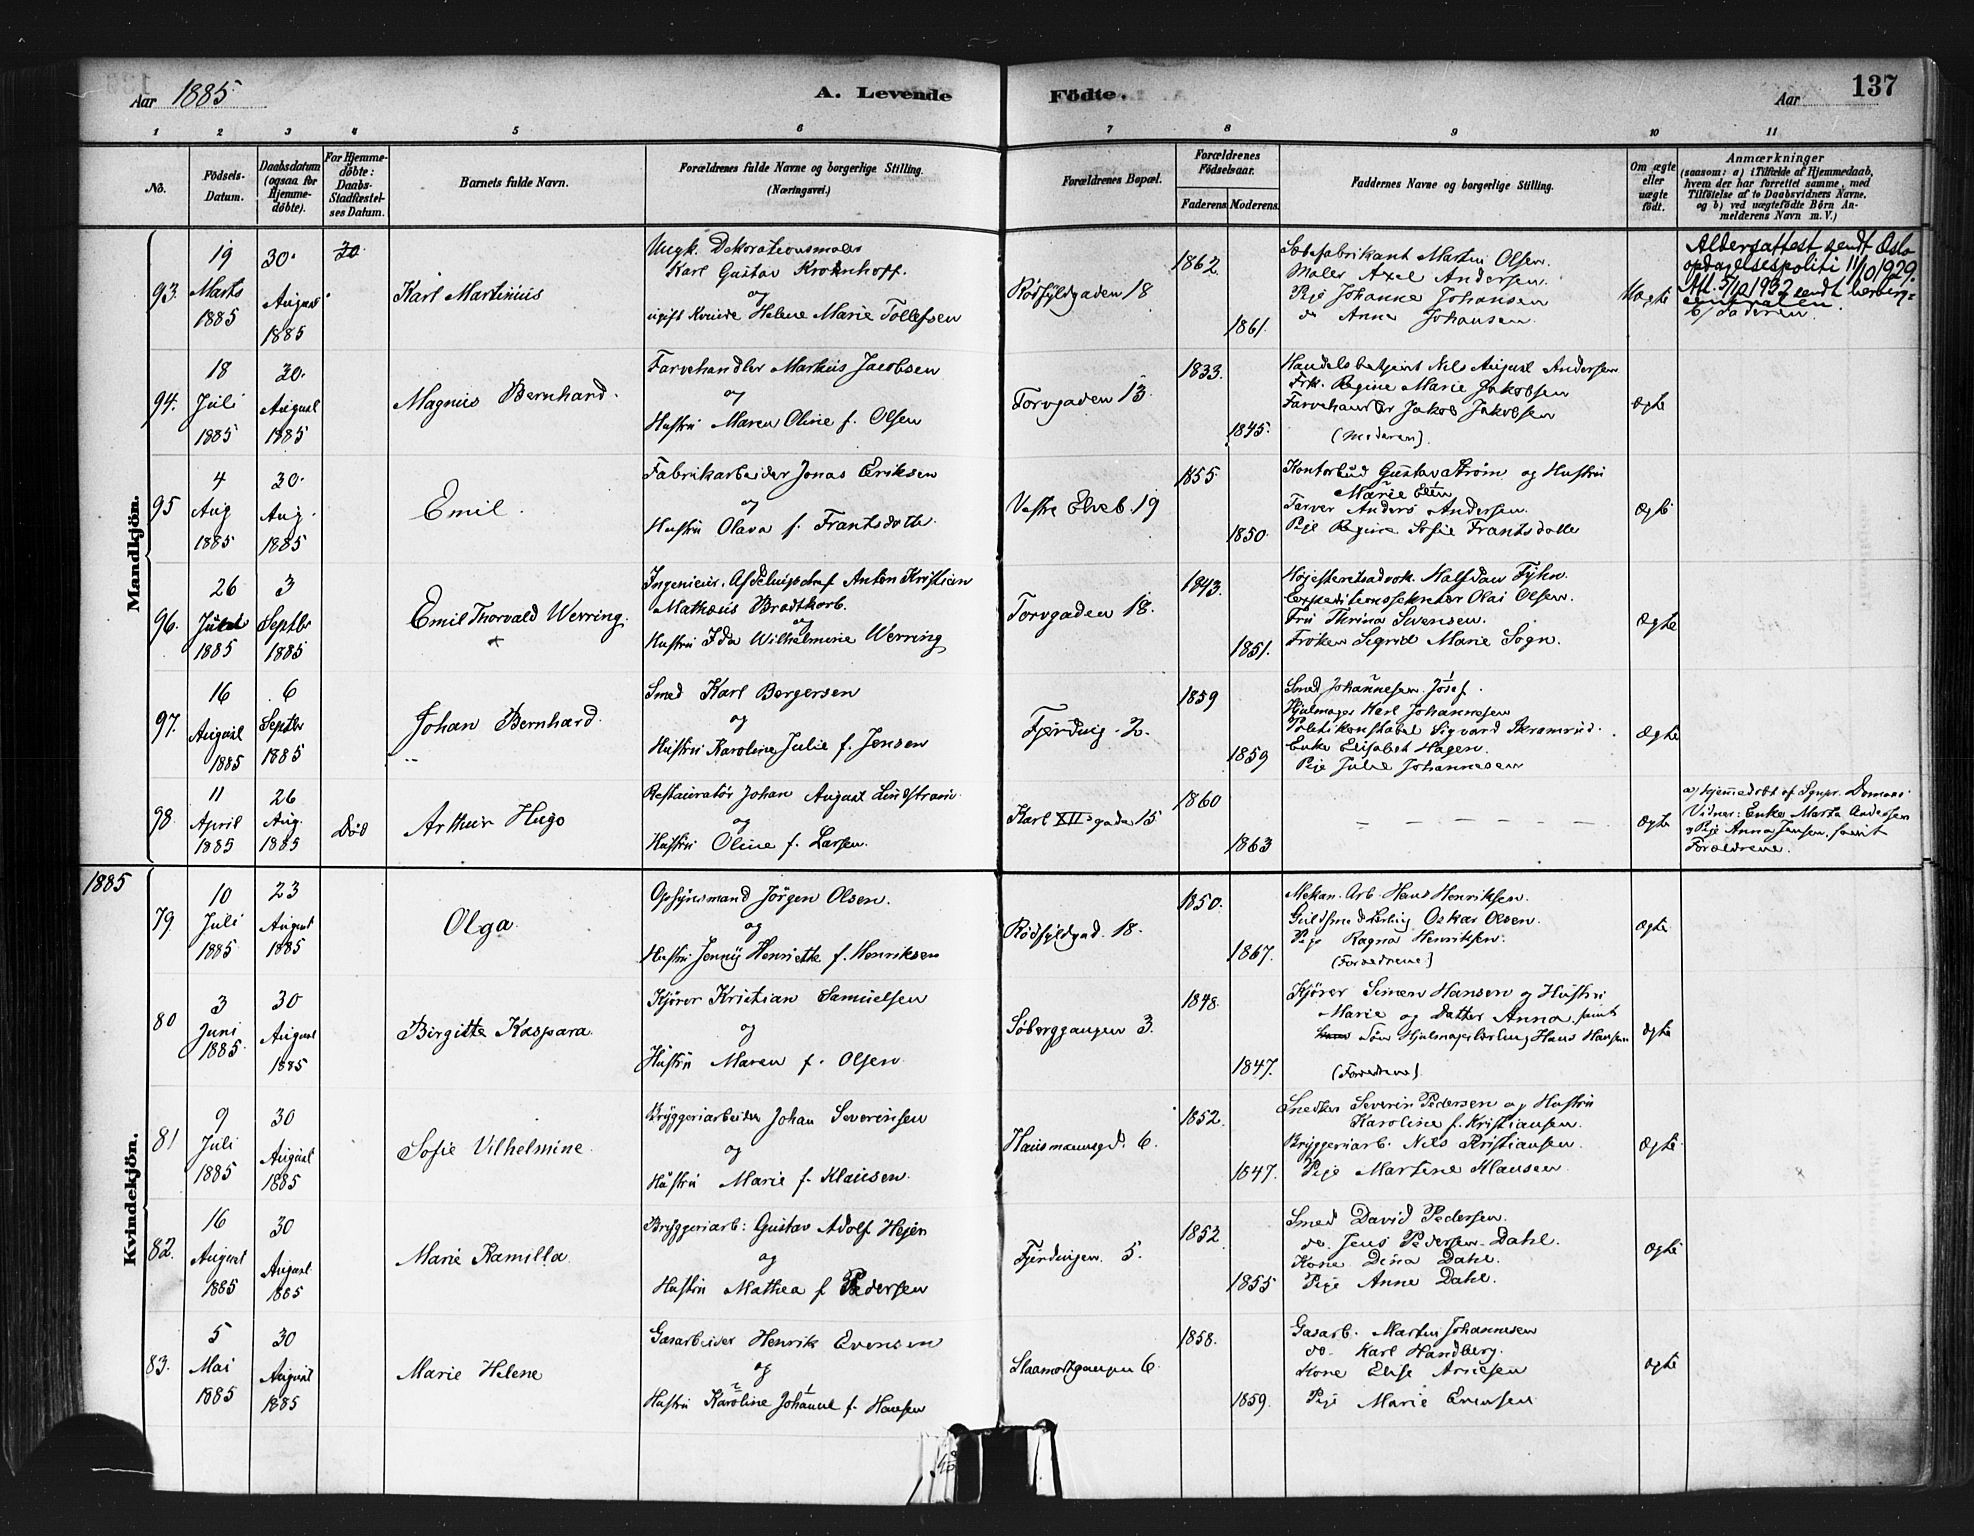 Aar 1885
A. Levende Födte.
Aar
137
1 2 3 4 5 6 7 8 9 10 11
No.
Födsels-Datum.
Daabsdatum (ogsaa for Hjemme-döbte).
For Hjemme-döbte: Daabs-Stadfæstel-ses Datum.
Barnets fulde Navn.
Forældrenes fulde Navne og borgerlige Stilling. (Næringsvei.)
Forældrenes Bopæl.
Forældrenes Födselsaar.
Faderens. Moderens.
Faddernes Navne og borgerlige Stilling.
Om ægte eller uægte födt.
Anmærkninger
(saasom: a) i Tilfælde af Hjemmedaab,
hvem der har forrettet samme, med
Tilföielse af to Daabsvidners Navne,
og b) ved uægtefödte Börn An-
melderens Navn m. V.)
Mandkjön.
93. 19 Marts 1885
30. August 1885
30
Karl Martinius
Ungk. Dekorationsmaler
Karl Gustav Krohnhoff.
og
ugift Kvinde Helene Marie Tollefsen
Rödfyldgaden 18
1862.
1861.
Sæbefabrikant Martin Olsen.
Maler Axel Andersen.
Pige Johanne Johansen
do Anna Johansen.
Uægte
Aldersattest sendt Oslo
opdagelsespoliti 11/10 1929.
94. 18 Juli 1885
30. August 1885
Magnus Bernhard.
Farvehandler Markus Jacobsen
og
Hustru Maren Oline f. Olsen
Torvgaden 13.
1833.
1845.
Handelsbetjent Nils August Andersen
Frk. Regine Marie Jakobsen
Farvehandler Jakob Jakobsen
(Moderen).
ægte
95 4 Aug 1885
30. Aug. 1885
Emil.
Fabrikarbeider Jonas Eriksen
og
Hustru Olava f. Frantsdatter
Vestre Elveb. 19
1855.
1850.
Kontorbud Gustav Ström og Hustru
Marie Elen
Farver Anders Andersen.
Pige Regine Sofie Frantsdatter
Ægte
96. 26 1885
3 Septbr 1885
Emil Thorvald Werring.
Ingeniör, Afdelingschef Anton Kristian
Mathæus Bradtkorb.
og
Hustru Ida Wilhelmine Werring
Torvgaden 18.
1843.
1851.
Höjesteretsadvok. Halfdan Fyhn.
Expeditionssekretær Olai Olsen.
Fru Thrina Svensen.
Fröken Sigrid Marie Sogn.
Ægte
97. 16 August 1885
6 Septbr 1885
Johan Bernhard.
Smed Karl Borgersen
og
Hustru Karoline Julie f. Jensen
Fjerding. 2.
1859
1859
Smed Johannesen Josef.
Hjulmager Karl Johannesen
Politikonstabel Sigvard Skramrud.
Enke Elisabet Hagen.
Pige Julie Johannesen
Ægte
98. 11 April 1885
26 Aug. 1885
Död
Arthur Hugo
Restauratör Johan August Lindström
og
Hustru Oline f. Larsen.
Karl XII's gade 15
1860
1863
Ægte
a) Hjemmedöbt af
Vidner: Enke Marta Andersen
og Pige Anna Jensen, samt
Forældrene.
1885
Kvindekjön.
79. 10 Juli 1885
23 August 1885
Olga.
Opsynsmand Jörgen Olsen.
og
Hustru Jenny Henriette f. Henriksen
Rödfyldgad. 18.
1850.
1867.
Mekan. Arb. Hans Henriksen.
Guldsmedlærling Oskar Olsen.
Pige Ragna Henriksen.
(Forældrene)
ægte
80 3 Juni 1885.
30 August 1885
Birgitte Kaspara.
Kjörer Kristian Samuelsen
og
Hustru Maren f. Olsen.
Söberggangen 3.
1848.
1847.
Kjörer Simen Hansen og Hustru
Marie og Datter Anna, samt
Sön Hjulmagerlærling Hans Hansen
(Forældrene).
ægte
81 9 Juli 1885
30 August 1885
Sofie Vilhelmine.
Bryggeriarbeider Johan Severinsen
og
Hustru Marie f. Klausen.
Hausmannsgd. 6.
1852.
1847.
Snedker Severin Pedersen og Hustru
Karoline f. Kristiansen.
Bryggeriarb. Nils Kristiansen.
Pige Martine Klausen.
Ægte
82. 16 August 1885
30 August 1885
Marie Kamilla.
Bryggeriarb: Gustav Adolf Hejer
og
Hustru Mathea f Pedersen
Fjerdingen 5.
1852.
1855
Smed David Pedersen.
do. Jens Pedersen Dahl.
Kone Dina Dahl.
Pige Anne Dahl.
ægte
83. 5 Mai 1885
30 August 1885
Marie Helene
Gasarbeider Henrik Evensen
og
Hustru Karoline Johanne f. Hansen
Slaamotgangen 6.
1858.
1859.
Gasarb. Martin Johannesen
do. Karl Handberg.
Kone Elise Arnesen
Pige Marie Evensen
ægte